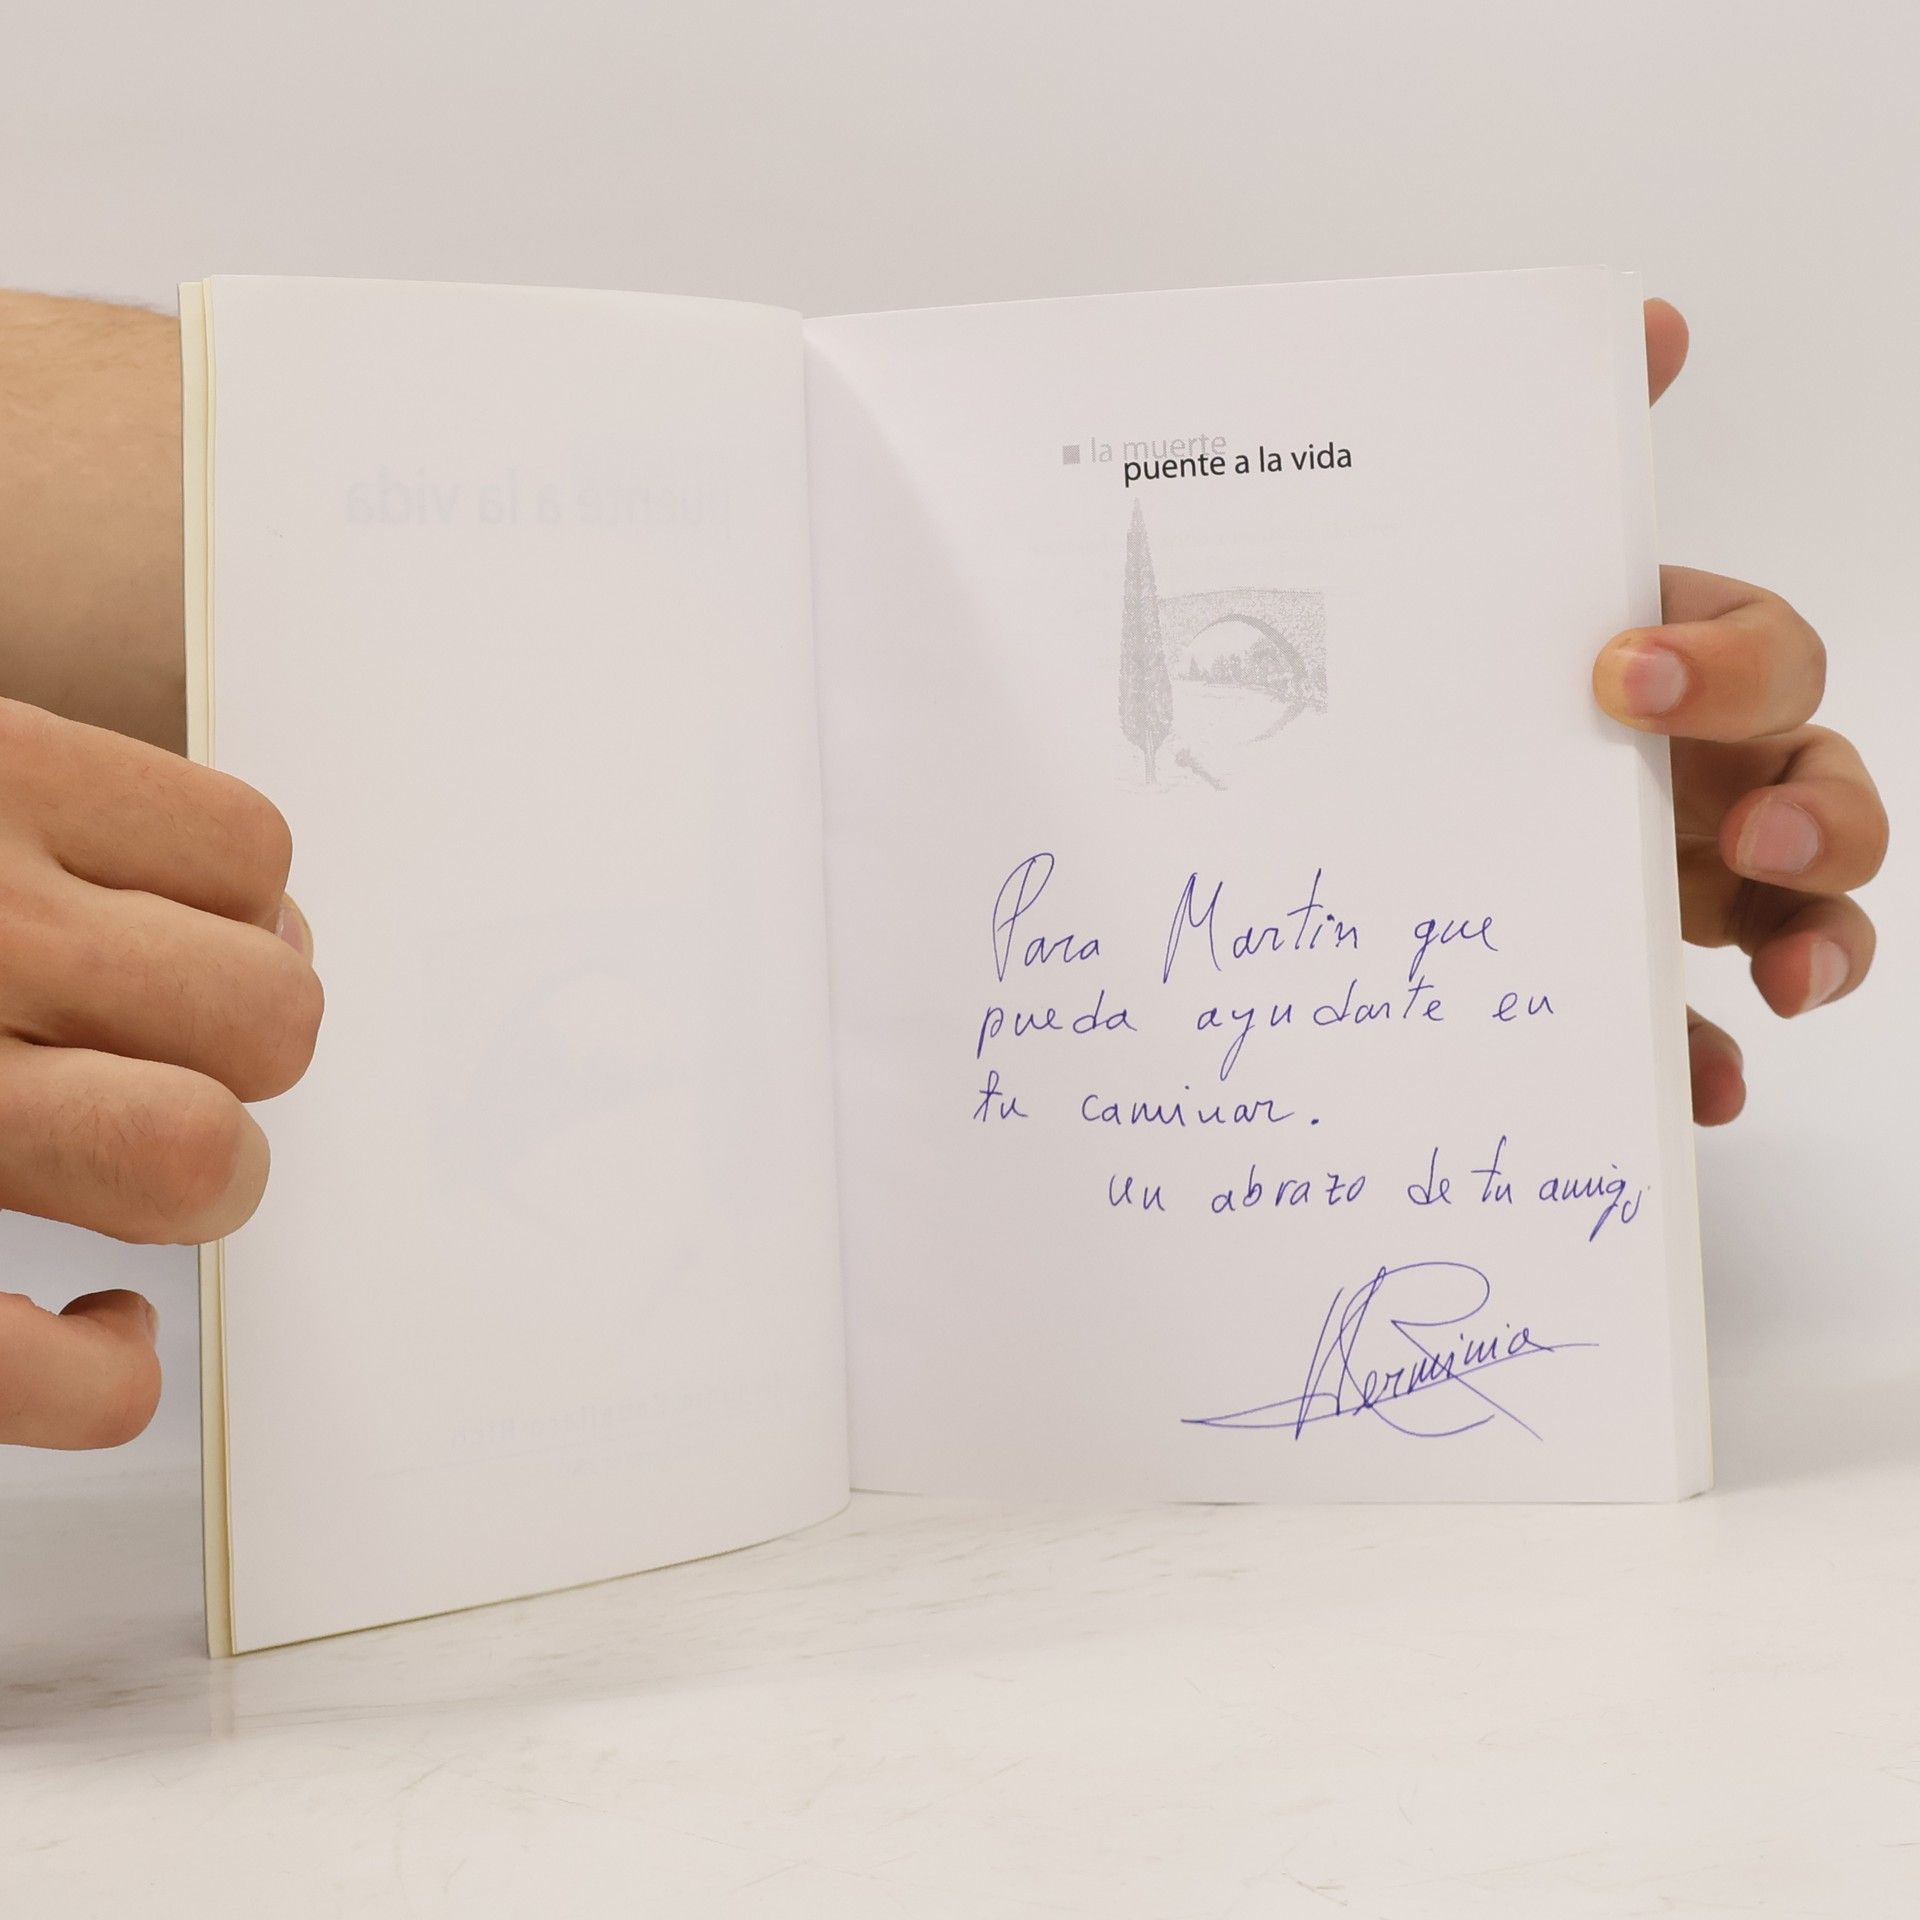 la muerte
puente a la vida
Para Martin que
pueda ayudarte en
tu caminar.
un abrazo de tu amiga
Herminia